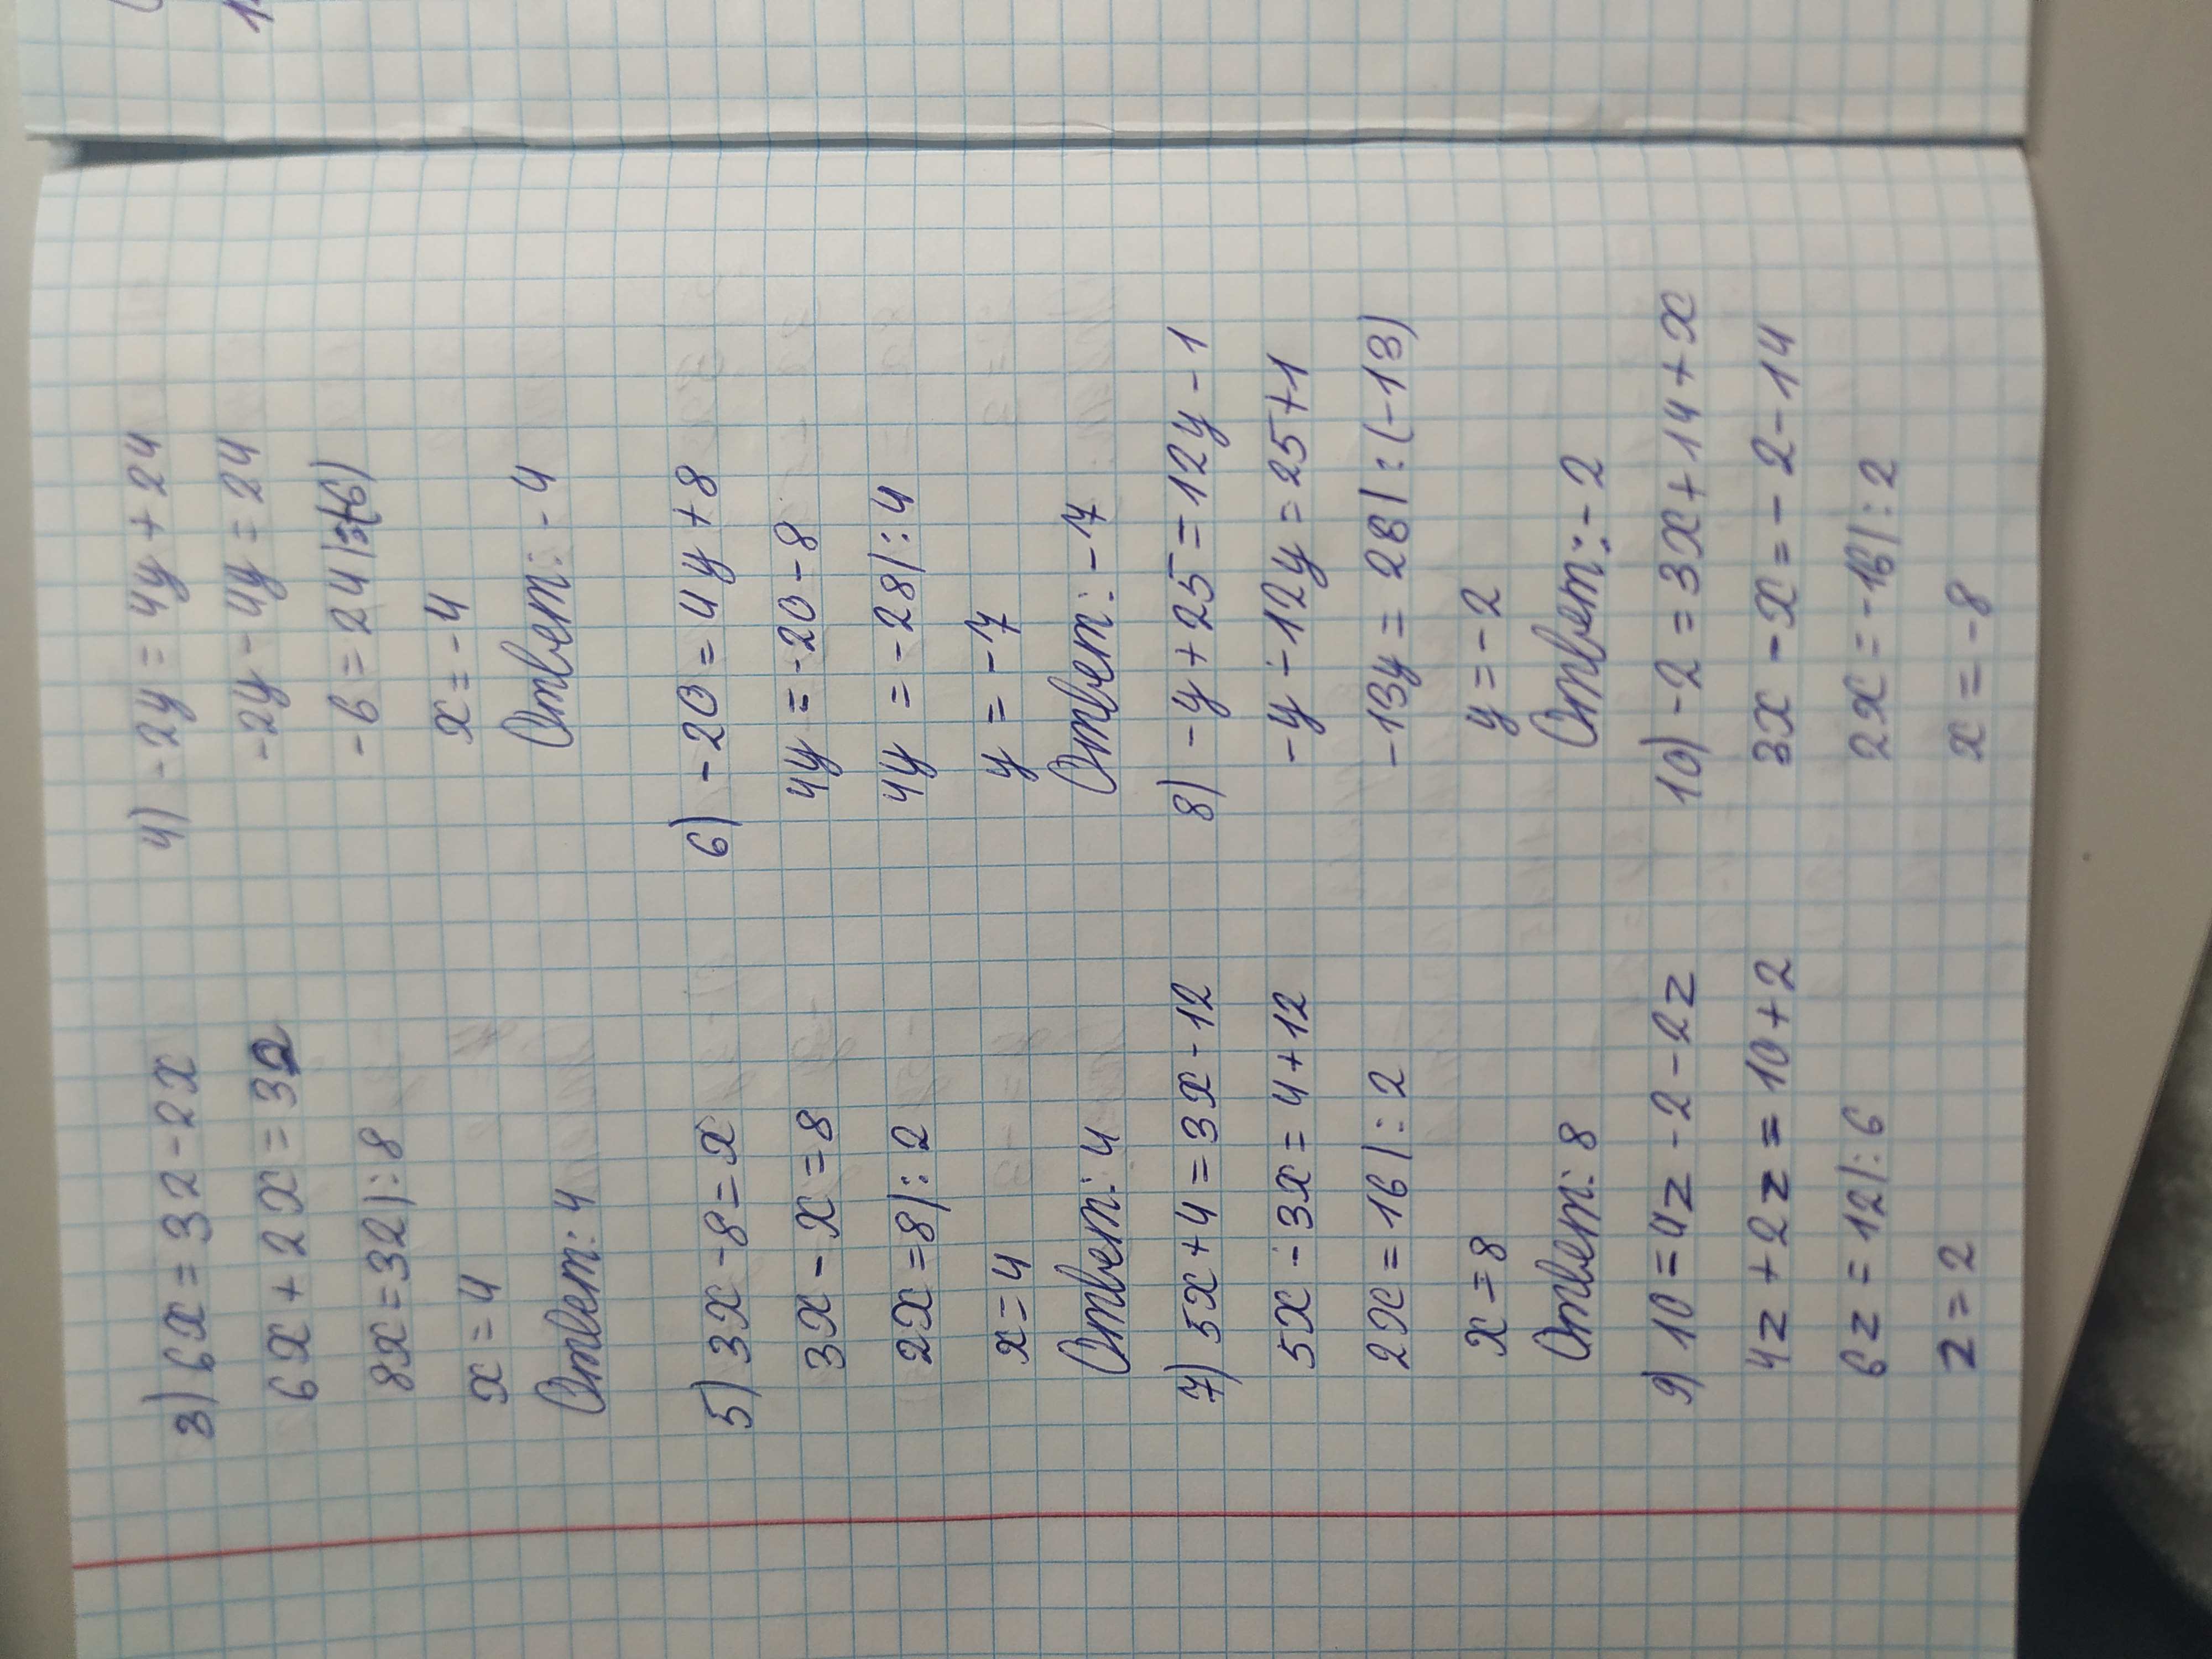 3) 6x = 32 - 2x
6x + 2x = 32
8x = 32 | : 8
x = 4
Ответ: 4
4) -2y = 4y + 24
-2y - 4y = 24
-6 = 24 | : (-6)
x = -4
Ответ: -4
5) 3x - 8 = x
3x - x = 8
2x = 8 | : 2
x = 4
Ответ: 4
6) -20 = 4y + 8
4y = -20 - 8
4y = -28 | : 4
y = -7
Ответ: -7
7) 5x + 4 = 3x - 12
5x - 3x = 4 + 12
2x = 16 | : 2
x = 8
Ответ: 8
8) -y + 25 = 12y - 1
-y - 12y = 25 + 1
-13y = 28 | : (-13)
y = -2
Ответ: -2
9) 10 = 4z - 2 - 2z
4z + 2z = 10 + 2
6z = 12 | : 6
z = 2
10) -2 = 3x + 14 + x
3x - x = -2 - 14
2x = -16 | : 2
x = -8